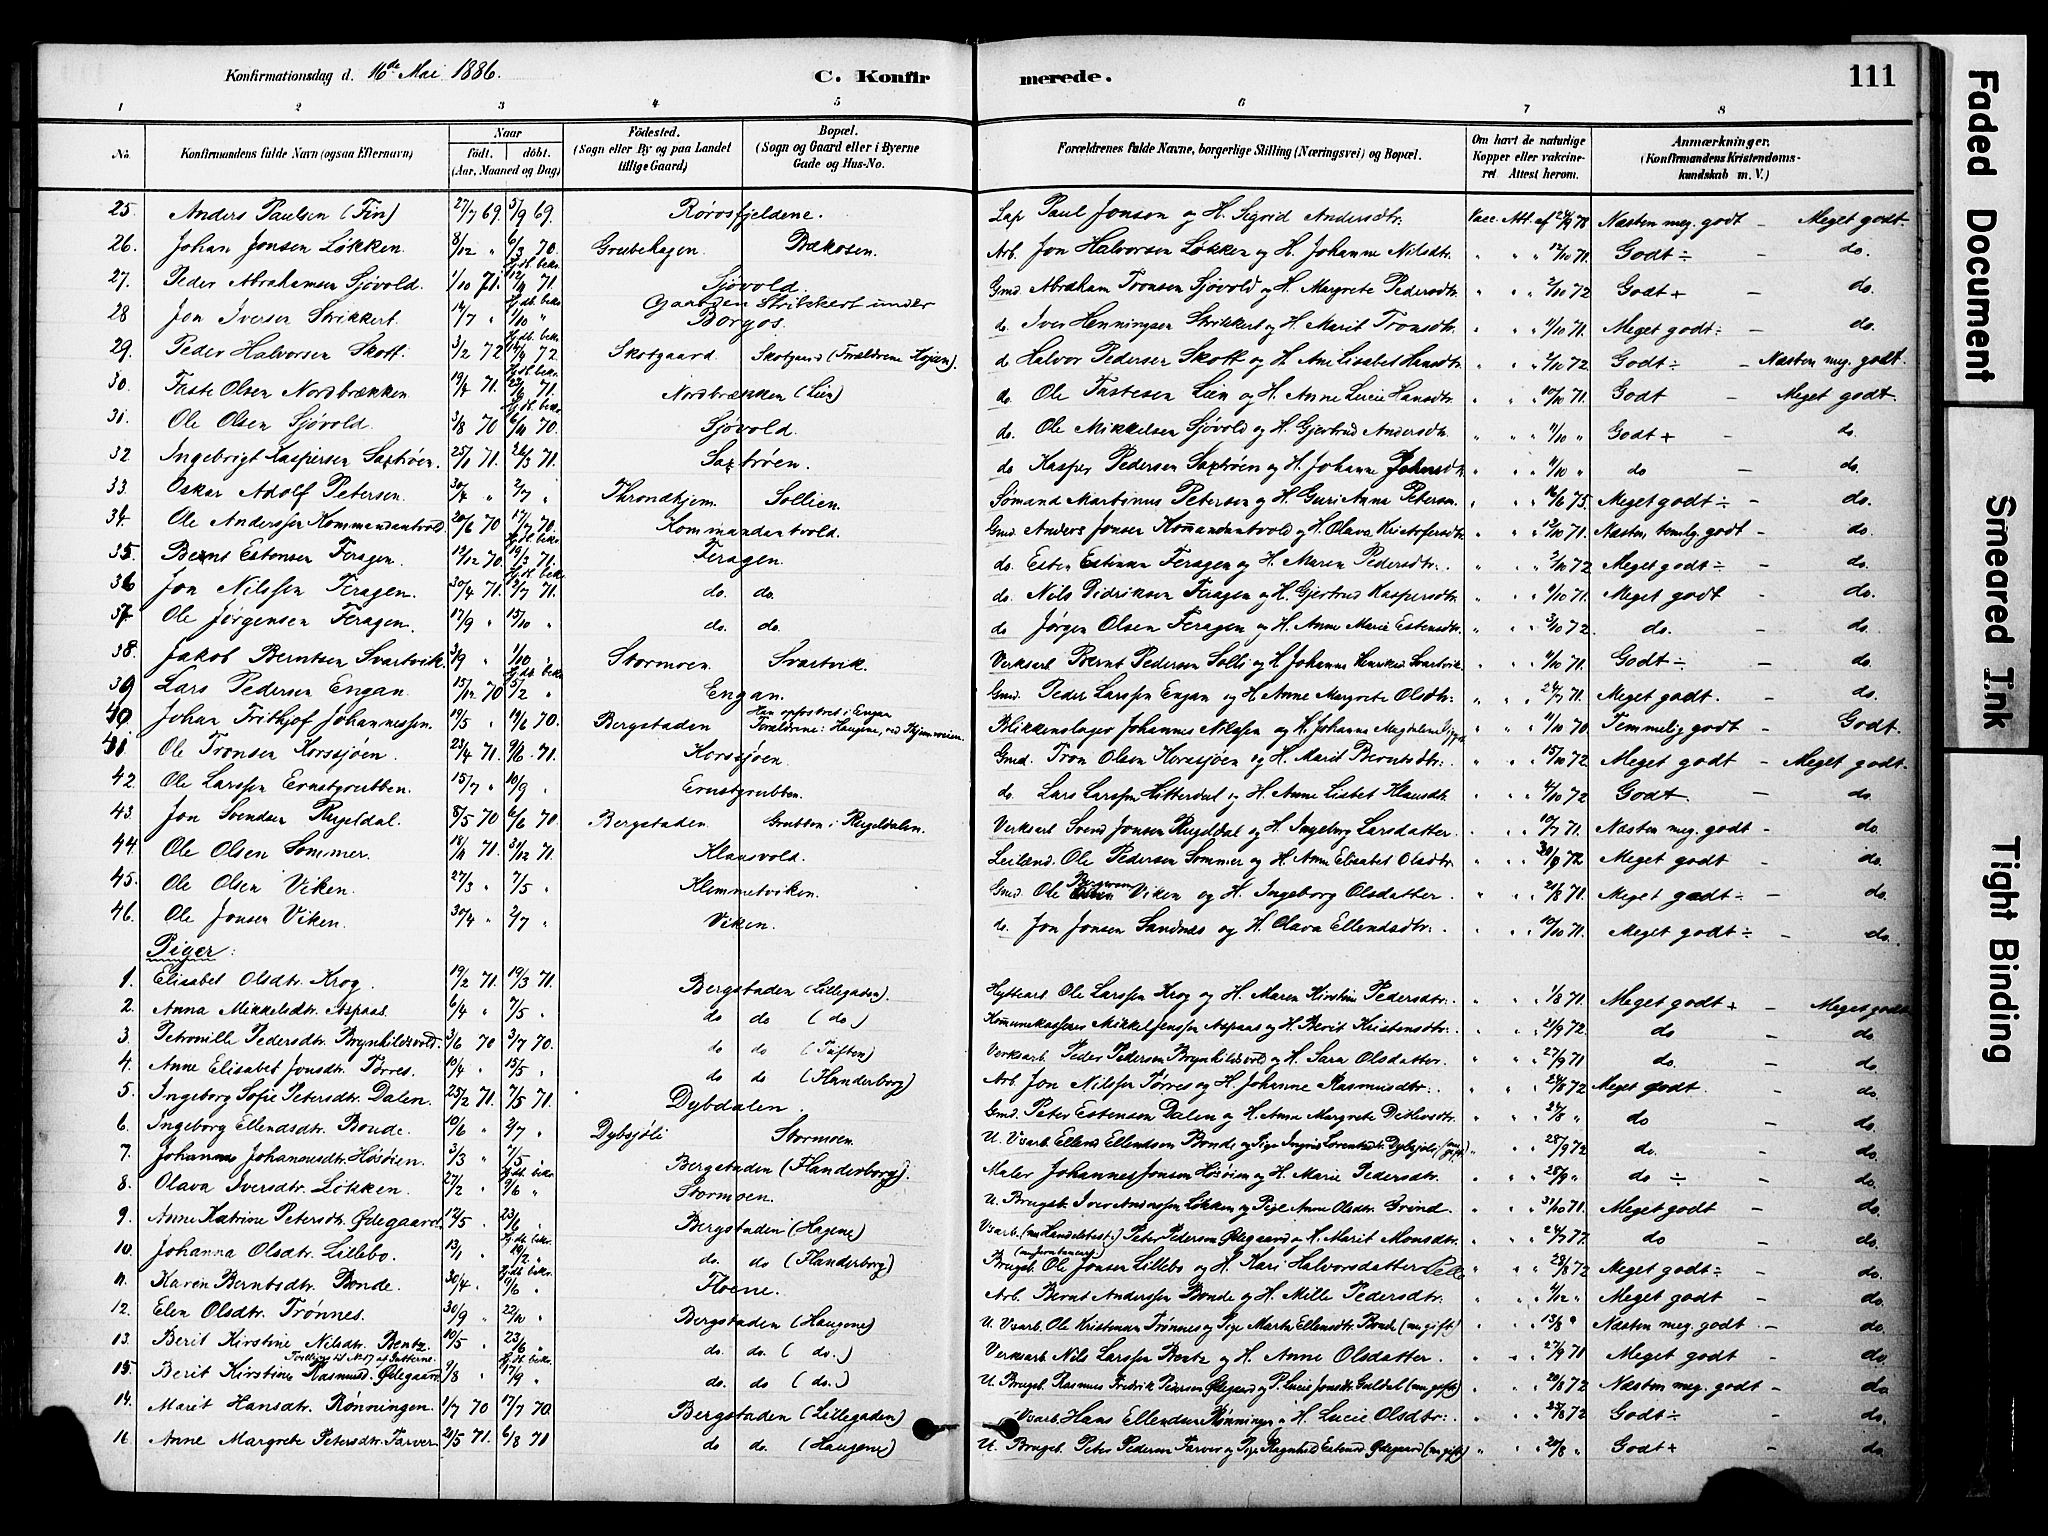 Konfirmationsdag d. 16de Mai 1886. C. Konfir merede. 111
1 2 3 4 5 6 7 8
No. Konfirmandens fulde Navn (ogsaa Efternavn) Naar födt. döbt. (Aar, Maaned og Dag) Födested. (Sogn eller By og paa Landet tillige Gaard) Bopæl. (Sogn og Gaard eller i Byerne Gade og Hus-No. Forældrenes fulde Navne, borgerlige Stilling (Næringsvei) og Bopæl. Om havt de naturlige Kopper eller vakcineret. Attest herom. Anmærkninger. (Konfirmandens Kristendomskundskab m. V.)
25. Anders Paulsen (Fin) 27/7 69. 5/9 69. Rörosfjeldene. Lap Paul Jonson og H. Sigrid Andersdtr. Vacc. Att. af 24/9 78 Næsten meg. godt - Meget godt.
26. Johan Jonsen Løkken. 8/12 " 6/3 70. Grubehagen. Bækosen. Arb. Jon Halvorsen Løkken og H. Johanne Nilsdtr. " " " 12/10 71. Godt ÷ - do.
27. Peder Abrahamsen Sjøvold. 1/10 71. 12/11 71. Sjövold. Gmd Abraham Tronsen Sjøvold og H. Margrete Pedersdtr. " " " 2/10 72 Godt + - do.
28 Jon Iversen Strikkert. 14/7 " 1/10 " Gaarden Strikkert under Borgos. do. Iver Henningsen Strikkert og H. Marit Tronsdtr. " " " 11/10 71. Meget godt ÷ - do.
29. Peder Halvorsen Skott. 3/2 72 14/4 72. Skotgaard. Skotgaard (Forældrene Højen). do Halvor Pedersen Skott og H. Ane Lisabet Hansdtr. " " " 2/10 72. Godt ÷ - Næsten meg. godt.
30. Faste Olsen Nordbrækken. 19/4 71. 29/6 71. Nordbrækken (Lien) do. Ole Fastesen Lien og H. Anne Lucie Hansdtr. " " " 10/10 71. Godt - Meget godt.
31. Ole Olsen Sjøvold. 3/8 70 6/11 70. Sjövold. do. Ole Mikkelsen Sjøvold og H. Gjertrud Andersdtr. " " " 11/10 " Godt + - do.
32 Ingebrigt Kaspersen Saxtrøen. 25/1 71. 26/3 71. Saxtrøen. do Kasper Pedersen Saxtrøen og H. Johanne Johnsdtr. " " " 11/10 " do - do.
33. Oskar Adolf Petersen. 30/4 " 2/7 " Throndhjem. Sollien. Sømand Martinus Petersen og H. Guri Anna Petersen. " " " 16/6 75. Meget godt ÷ - do.
34. Ole Anderssen Kommandantvold 20/6 70 17/7 70. Kommandantvold. Gmd. Anders Jonsen Komandantvold og H. Olava Kristofersdtr. " " " 12/10 71. Næsten temlig godt - do.
35. Bernt Estensen Feragen. 19/12 70. 19/3 71. Feragen. do. Esten Estensen Feragen og H. Maren Pedersdtr. " " " 2/10 72 Meget godt ÷ - do.
36 Jon Nilssen Feragen. 30/4 71. 2/7 71. do. do. do. Nils Didriksen Feragen og H. Gjertrud Kaspersdtr. " " " 11/10 71. Meget godt - do.
37 Ole Jörgensen Feragen. 17/9 " 15/10 " do. do. do Jørgen Olsen Feragen og H. Anne Marie Estensdtr. " " " 2/10 72. do. - do.
38. Jakob Berntsen Svartvik. 3/9 " 1/10 " Stormoen. Svartvik. Verksarb Bernt Pedersen Solli og H. Johanna Svartvik. " " " 11/10 71. Godt ÷ - do.
39 Lars Pedersen Engan. 15/12 70 5/2 " Engan. Gmd. Peder Larssen Engan og H. Anne Margrete Olsdtr. " " " 24/7 71. Meget godt. - do.
40 Johan Frithjof Johannessen. 19/5 " 19/6 70. Bergstaden Han opfostret i Engan Forældrene: Haugene, Blikkenslager Johannes Nilssen og H. Johanna Magdalene " " " 11/10 70 Temmelig godt - Godt.
41 Ole Tronsen Korssjøen. 23/4 71. 9/6. 71. Korssjøen. Gmd. Tron Olsen Korssjøen og H. Marit Berntsdtr. " " " 15/10 72. Meget godt - Meget godt.
42. Ole Larssen Ernstgrubben. 15/7 " 10/9 " Ernstgrubben. do. Lars Larssen Hitterdal og H. Anne Lisbet Klausdtr. " " " 4/10 72 Godt. - do.
43. Jon Svendsen Rugldal. 8/5 70 6/6 70. Bergstaden. Grubben i Rugeldalen. Verksarb Svend Jonsen Rugldal og H. Ingeborg Larsdatter. " " " 10/7 71. Næsten meg. godt - do.
44. Ole Olsen Sommer. 18/11 71. 31/12 71. Klausvold. Leilænd. Ole Pedersen Sommer og H. Anne Elisabet Olsdtr. " " " 30/9 72. Meget godt - do.
45. Ole Olsen Viken. 27/3 " 7/5 " Klemmetviken. Gmd. Ole Viken og H. Ingeborg Olsdatter. " " " 21/8 71. Meget godt ÷ - do.
46. Ole Jonsen Viken. 30/4 " 2/7 " Viken. do. Jon Jonsen Sandnæs og H. Olava Ellendsdtr. " " " 10/10 71. Meget godt ÷ - do.
Piger:
1. Elisabet Olsdtr. Krog. 19/2 71. 19/3 71. Bergstaden (Lillegaden). Hyttearb. Ole Larssen Krog og H. Maren Kirstine Pedersdtr. " " " 1/8 71. Meget godt + - Meget godt.
2. Anna Mikkelsdtr. Aspaas. 6/4 " 7/5 " do do (do.) Komunekasserer Mikkel Jenssen Aspaas og H. Berit Kristensdtr. " " " 21/9 72. do - do.
3. Petronille Pedersdtr. Brynhildsvold. 3/6 70 3/7 70. do do (Tuften) Verksarb. Peder Pedersen Brynhildsvold og H. Sara Olsdatter. " " " 27/9 71 do. - do.
4. Anne Elisabet Jonsdtr. Törres. 10/4 " 15/5 " do do (Flanderborg) Arb. Jon Nilssen Törres og H. Johanne Rasmusdtr. " " " 24/8 72 Meget godt. - do.
5. Ingeborg Sofie Petersdtr. Dalen. 25/2 71. 7/5 71. Dybdalen. Gmd. Peter Estensen Dalen og H. Anne Margrete Ditlevsdtr. " " " 24/8 " do - do.
6. Ingeborg Ellendsdtr. Bonde. 10/6 " 2/7 " Dybsjöli Stormoen. U. Vsarb. Ellend Ellendsen Bonde og Pige Ingrid Lorentsdtr. Dybsjöli (nu gift) " " " 28/9 72 do. - do.
7. Johanna Johannesdtr. Hosöien. 3/3 " 7/5 " Bergstaden (Flanderborg). Maler Johannes Jonsen Hosöien og H. Marie Pedersdtr. " " " 28/9 " do ÷ - do.
8. Olava Iversdtr. Løkken. 27/2 " 9/6 " Stormoen. U. Brugsb. Iver Andersen Løkken og Pige Anne Olsdtr. Grind. " " " 31/10 71. Meget godt - do.
9. Anne Katrine Petersdtr. Ødegaard. 12/5 " 23/6 " Bergstaden (Hagene) Vsarb. Peter Pedersen Ødegaard og H. Marit Monsdtr. " " " 24/7 77. do - do.
10. Johanna Olsdtr. Lillebo. 13/1 " 19/2 " do. do (Flanderborg) Brugsb. Ole Jonsen Lillebo og H. Kari Halvorsdatter " " " 29/8 72 Meget godt ÷ - do.
11. Karen Berntsdtr. Bonde. 30/4 " 9/6 " Floene. Arb. Bernt Anderssen Bonde og H. Mille Pedersdtr. " " " 4/12 " Meget godt - do.
12. Elen Olsdtr. Trønnes. 30/9 " 22/10 " Bergstaden (Haugene) U. Vsarb. Ole Kristensen Trønnes og Pige Marta Ellensdtr. Bonde (nu gift) " " " 13/8 " Næsten meg. godt - do.
13. Berit Kirstine Nilsdtr. Bentz. 10/5 " 23/6 " do. do. (do.) Verksarb. Nils Larssen Bentz og H. Anne Olsdatter. " " " 27/9 71 Meget godt - do.
15. Berit Kirstine Rasmusd. Ødegaard. 9/8 " 17/9 " do. do (do.) U. Brugsb. Rasmus Fredrik Pedersen Ødegaard og P. Lucie Jonsdtr. Guldal (nu gift) " " " 20/8 72 Næsten meg. godt - do.
14. Marit Hansdtr. Rönningen. 1/7 70 17/7 70. Bergstaden (Lillegaden) Vsarb. Hans Ellendsen Rönningen og H. Lucie Olsdtr. " " " 25/8 72 Godt ÷ - do.
16. Anne Margrete Petersdtr. Tarver 21/5 71. 6/8 71 do do. (Haugene) U. Brugsb. Peter Pedersen Tarver og Pige Ragnhild Ødegaard (nu gift) " " " 20/8 " Godt + - do.
Faded Document
Smeared Ink
Tight Binding